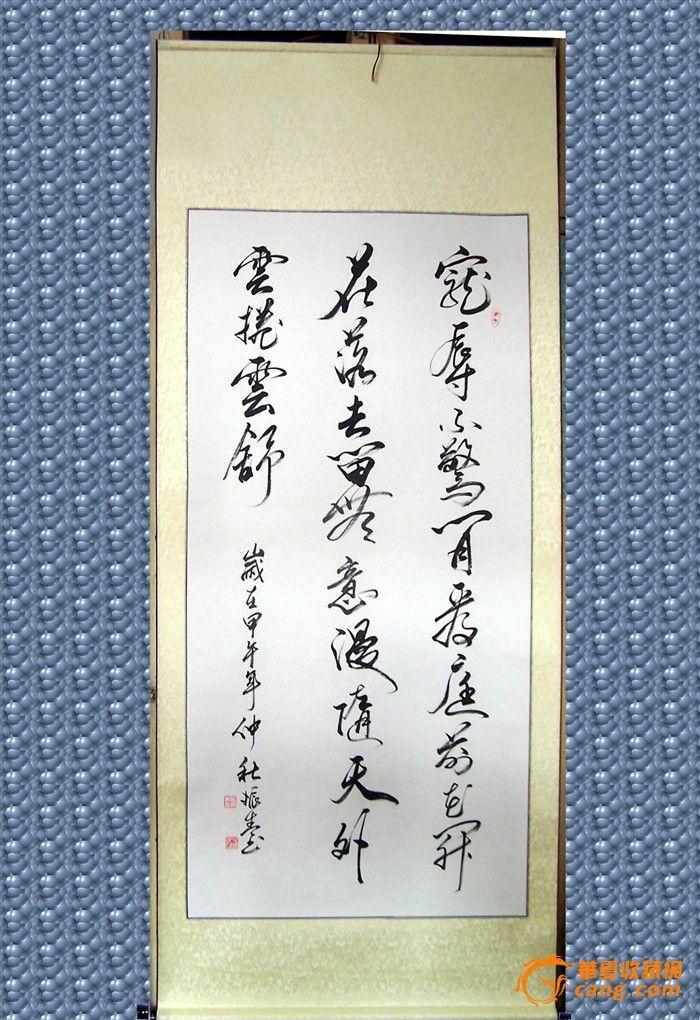 寵辱不驚閒看庭前花開
花落去留無意漫隨天外
雲捲雲舒
歲在甲午年仲秋振
華夏收藏網
cang.com